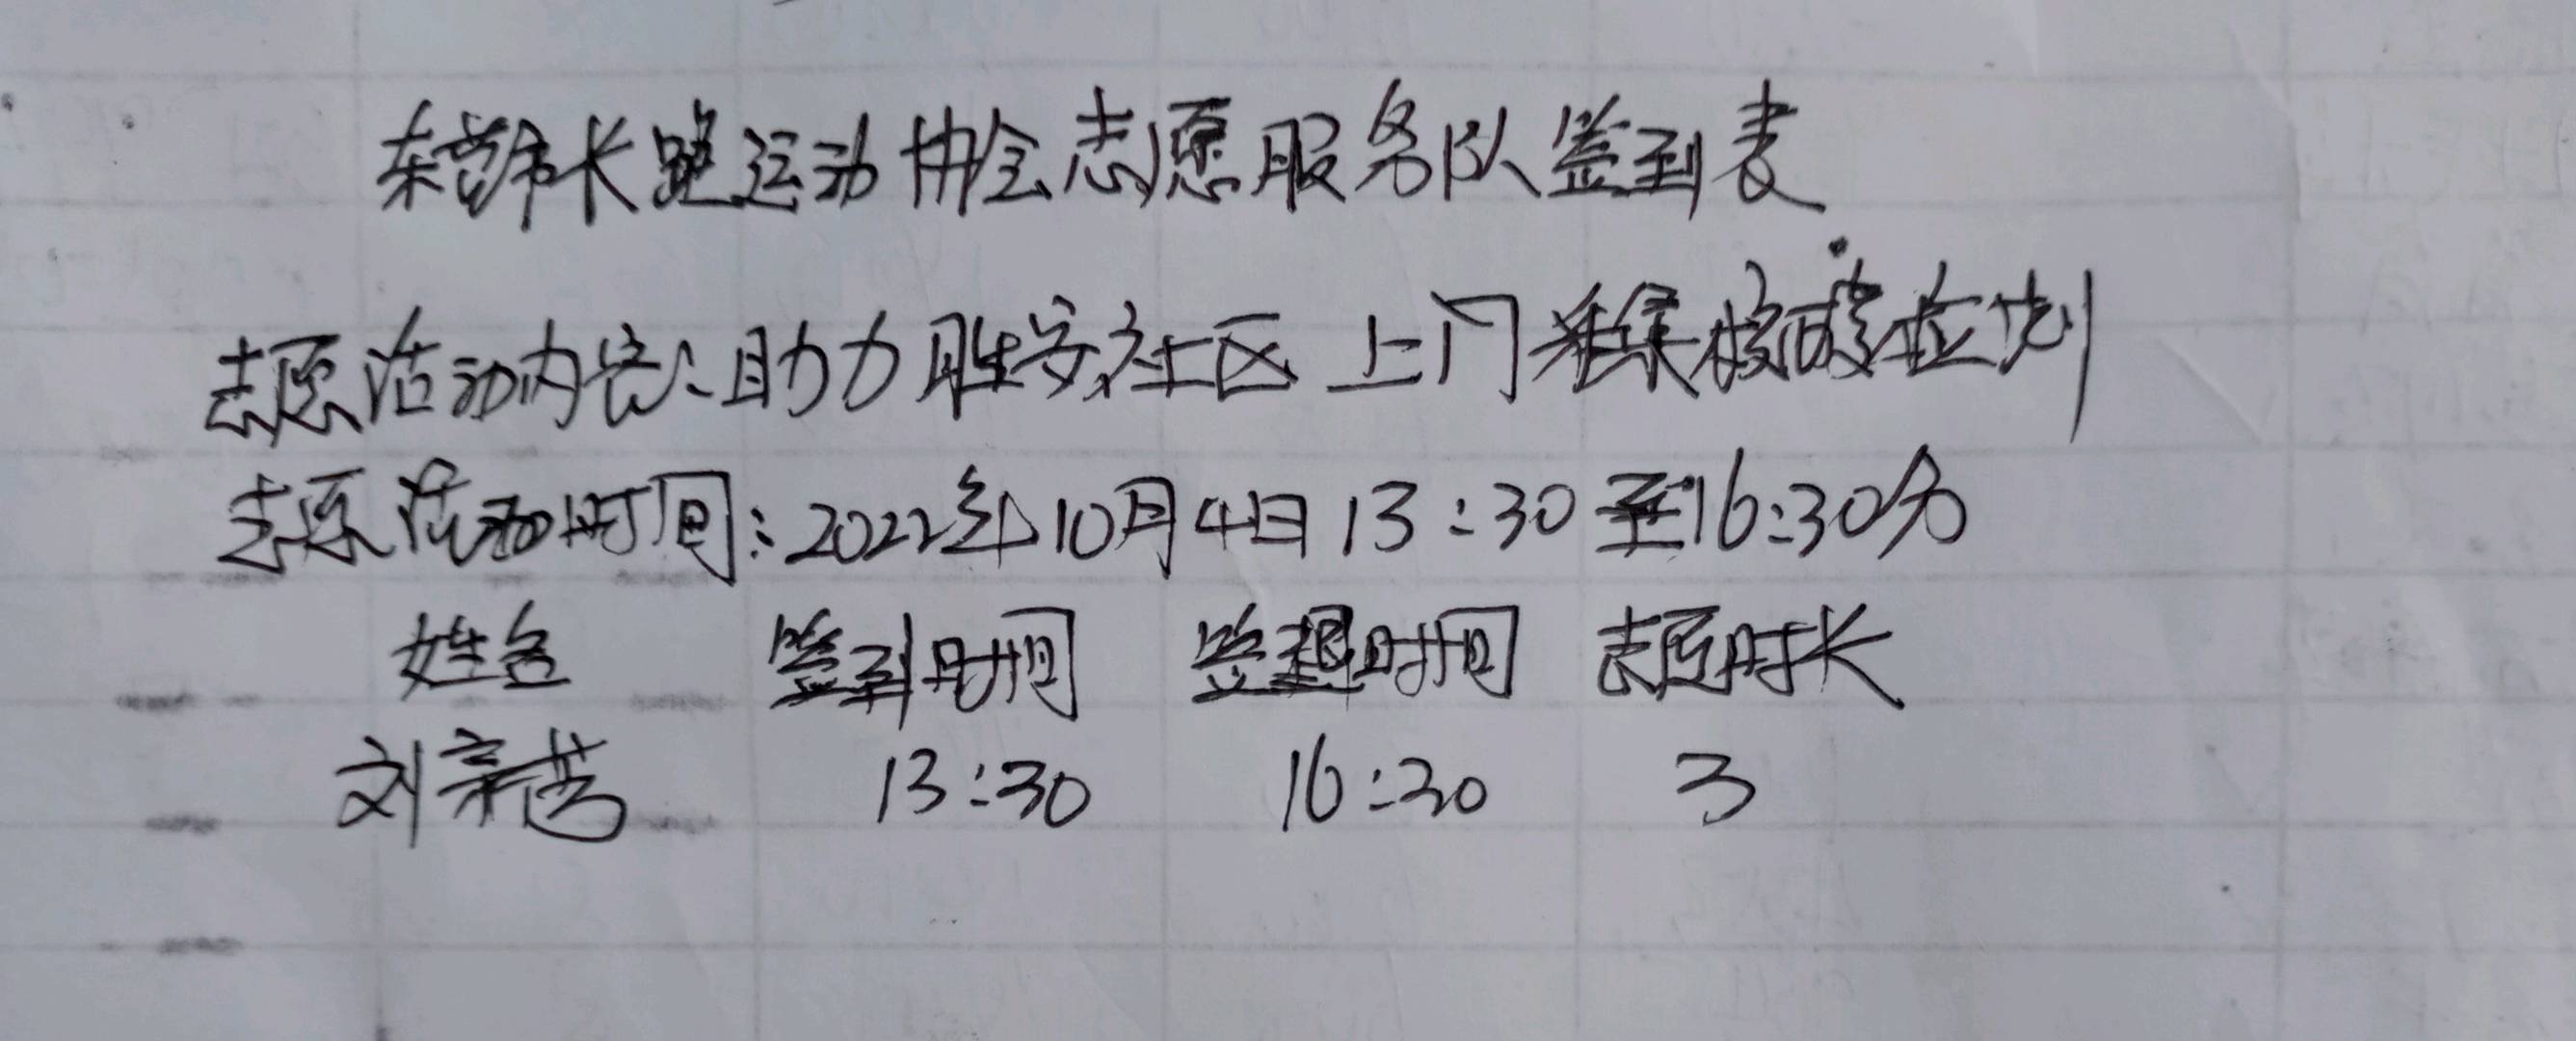 东莞市长跑运动协会志愿服务队签到表
志愿活动内容:助力胜安社区上门采集核酸检测
志愿活动时间:2022年10月4日13:30至16:30分
姓名 签到时间 签退时间 志愿时长
刘 13:30 16:30 3